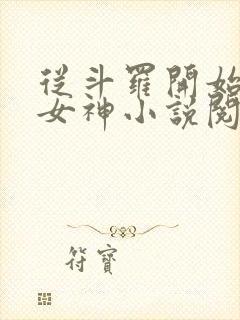 從斗羅開始
女神小說閱
符寶